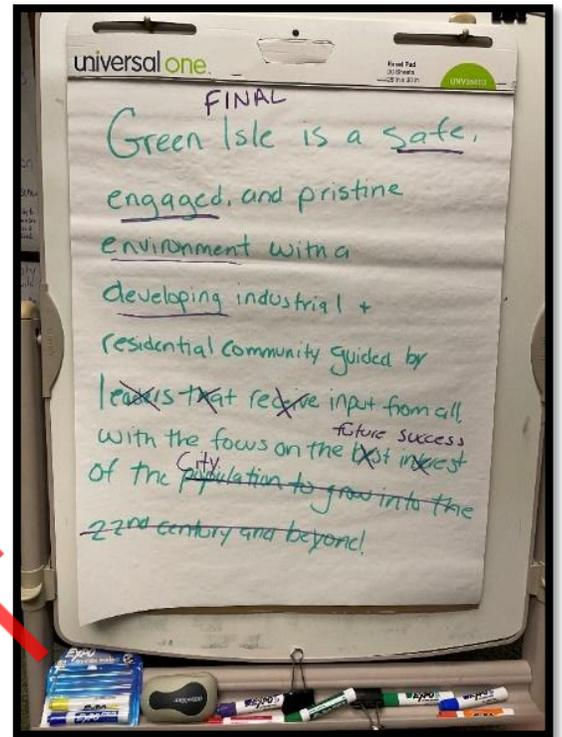 universal one
Easel Pad
FINAL
Green Isle is a safe,
engaged, and pristine
environment with a
developing industrial +
residential community guided by
leaders that receive input from all,
future success
with the focus on the best interest
City
of the population to grow into the
22nd century and beyond!
EXPO
EXPO
EXPO
EXPO